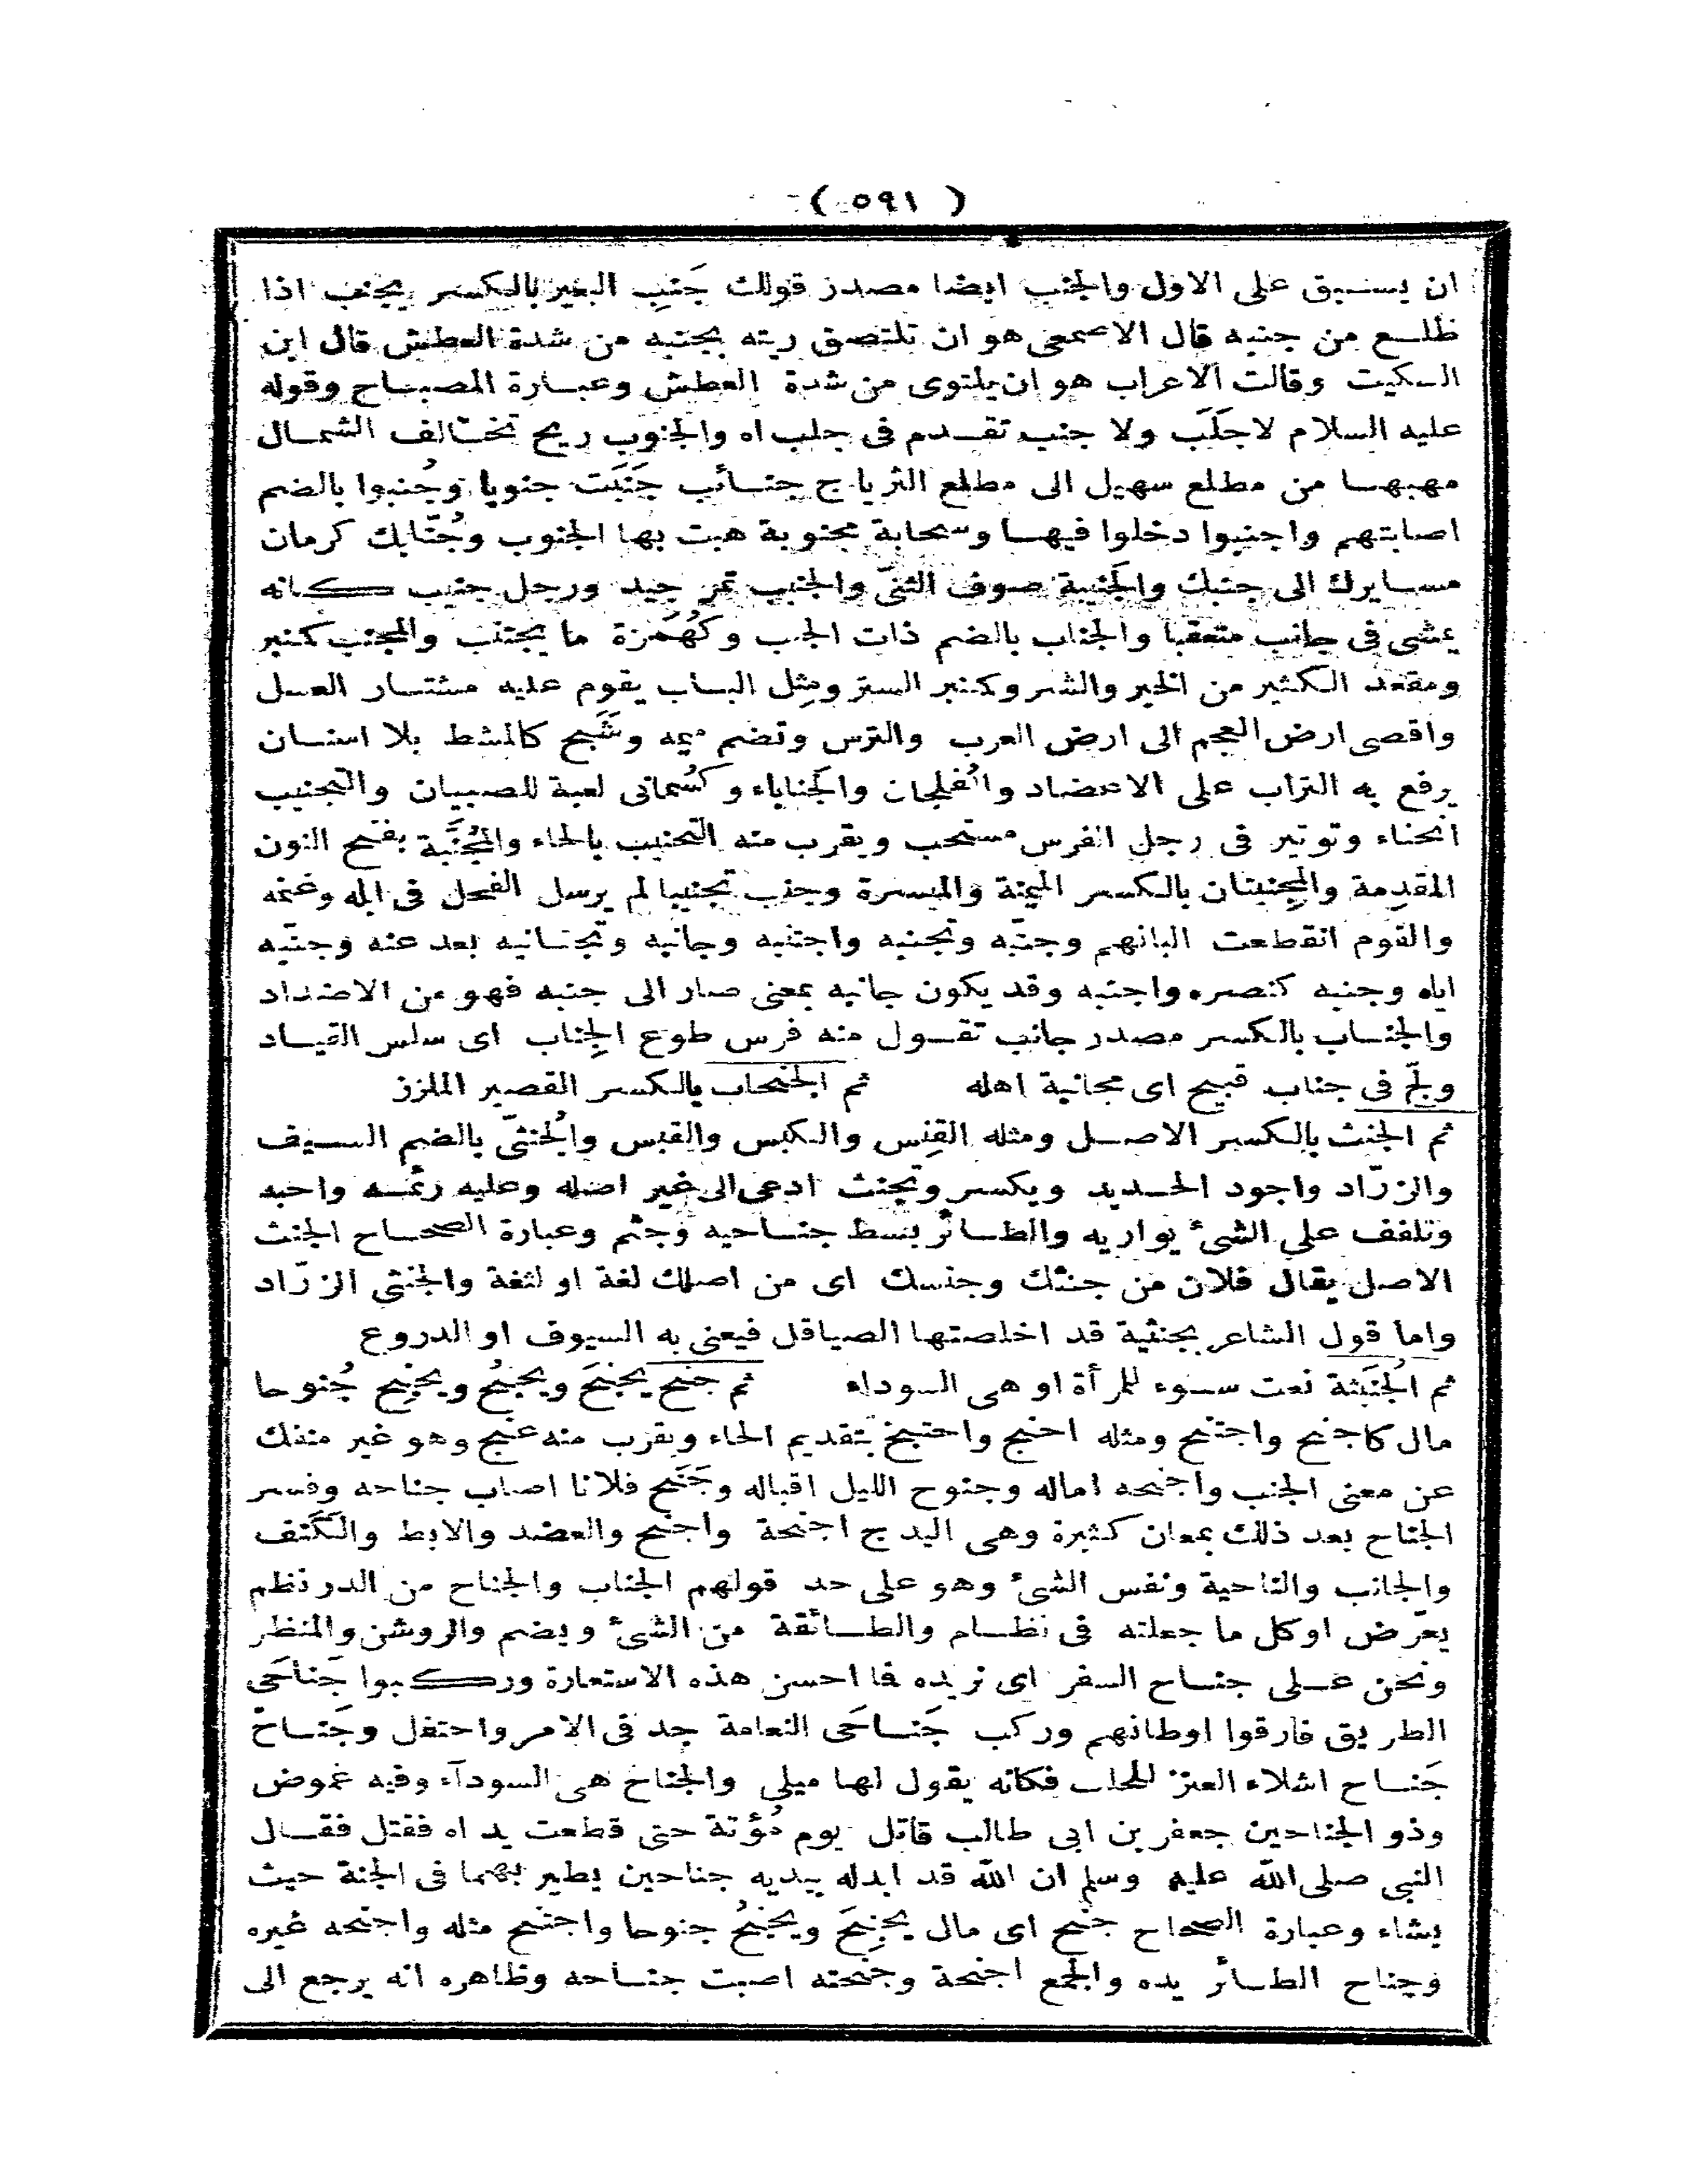 ( ٥٩١ )
ان يسبق على الاول والجنب ايضا مصدر قولك جَنِب البعير بالكسر يجنب اذا
ظلع من جنبه قال الاصمعى هو ان تلتصق رئته بجنبه من شدة العطش قال ابن
السكيت وقالت الاعراب هو ان يلتوى من شدة العطش وعبارة المصباح وقوله
عليه السلام لاجَلَبَ ولا جنب تقدم فى جلب اه والجنوب ريح تخالف الشمال
مهبها من مطلع سهيل الى مطلع الثريا ج جنائب جَنَبَت جنوبا وجُنبوا بالضم
اصابتهم واجنبوا دخلوا فيها وسحابة مجنوبة هبت بها الجنوب وجُنّابك كرمان
مسايرك الى جنبك والجَنيبة صوف الثنىّ والجنيب تمر جيد ورجل جنيب كانه
يمشى فى جانب متعقبا والجناب بالضم ذات الجنب وكهُمَزة ما يجتنب والمجنب كمنبر
ومقعد الكثير من الخير والشر وكمنبر الستر ومثل الباب يقوم عليه مشتار العسل
واقصى ارض العجم الى ارض العرب والترس وتضم ميمه وشَبَح كالمشط بلا اسنان
يرفع به التراب على الاعضاد والفلجان والجَناباء وكسُمانى لعبة للصبيان والتجنيب
انحناء وتوتير فى رجل الفرس مستحب ويقرب منه التحنيب بالحاء والمُجَنَّبة بفتح النون
المقدِمة والمجنِبتان بالكسر الميمنة والميسرة وجنب تجنيبا لم يرسل الفحل فى ابله وغنمه
والقوم انقطعت البانهم وجنّبه وتجنبه واجتنبه وجانبه وتجانبه بعد عنه وجنّبه
اياه وجنبه كنصره واجنبه وقد يكون جانبه بمعنى صار الى جنبه فهو من الاضداد
والجناب بالكسر مصدر جانب تقول منه فرس طوع الجِناب اى سلس القياد
ولجّ فى جناب قبيح اى مجانبة اهله ثم الجنحاب بالكسر القصير الملزز
ثم الجنث بالكسر الاصل ومثله القِنس والكبس والقبس والجُنثىّ بالضم السيف
والزرّاد واجود الحديد ويكسر وتجنث ادعى الى غير اصله وعليه رئمه واحبه
وتلفف على الشئ يواريه والطائر بسط جناحيه وجثم وعبارة الصحاح الجنث
الاصل يقال فلان من جنثك وجنسك اى من اصلك لغة او لثغة والجنثى الزرّاد
واما قول الشاعر بجنثية قد اخلصتها الصياقل فيعنى به السيوف او الدروع
ثم الجُنبَثة نعت سوء للمرأة او هى السوداء ثم جنح يجنَح ويجنُح ويجنِح جُنوحا
مال كاجنح واجتنح ومثله احنج واحتنج بتقديم الحاء ويقرب منه عنج وهو غير منفك
عن معنى الجنب واجنحه اماله وجنوح الليل اقباله وجَنَح فلانا اصاب جناحه وفسر
الجناح بعد ذلك بمعان كثيرة وهى اليد ج اجنحة واجنح والعضد والابط والكَتف
والجانب والناحية ونفس الشئ وهو على حد قولهم الجناب والجناح من الدر نظم
يعرّض او كل ما جعلته فى نظام والطائفة من الشئ ويضم والروشن والمنظر
ونحن على جناح السفر اى نريده فا احسن هذه الاستعارة وركبوا جَناحَى
الطريق فارقوا اوطانهم وركب جَناحَى النعامة جد فى الامر واحتفل وجَناح
جَناح اشلاء العنز للحلب فكانه يقول لها ميلى والجناح هى السودآء وفيه غموض
وذو الجناحين جعفر بن ابى طالب قاتل يوم مُؤتة حتى قطعت يداه فقتل فقال
النبى صلى الله عليه وسلم ان الله قد ابدله بيديه جناحين يطير بهما فى الجنة حيث
يشاء وعبارة الصحاح جنح اى مال يجنِح ويجنُح جنوحا واجتنح مثله واجنحه غيره
وجناح الطائر يده والجمع اجنحة وجنحته اصبت جناحه وظاهره انه يرجع الى